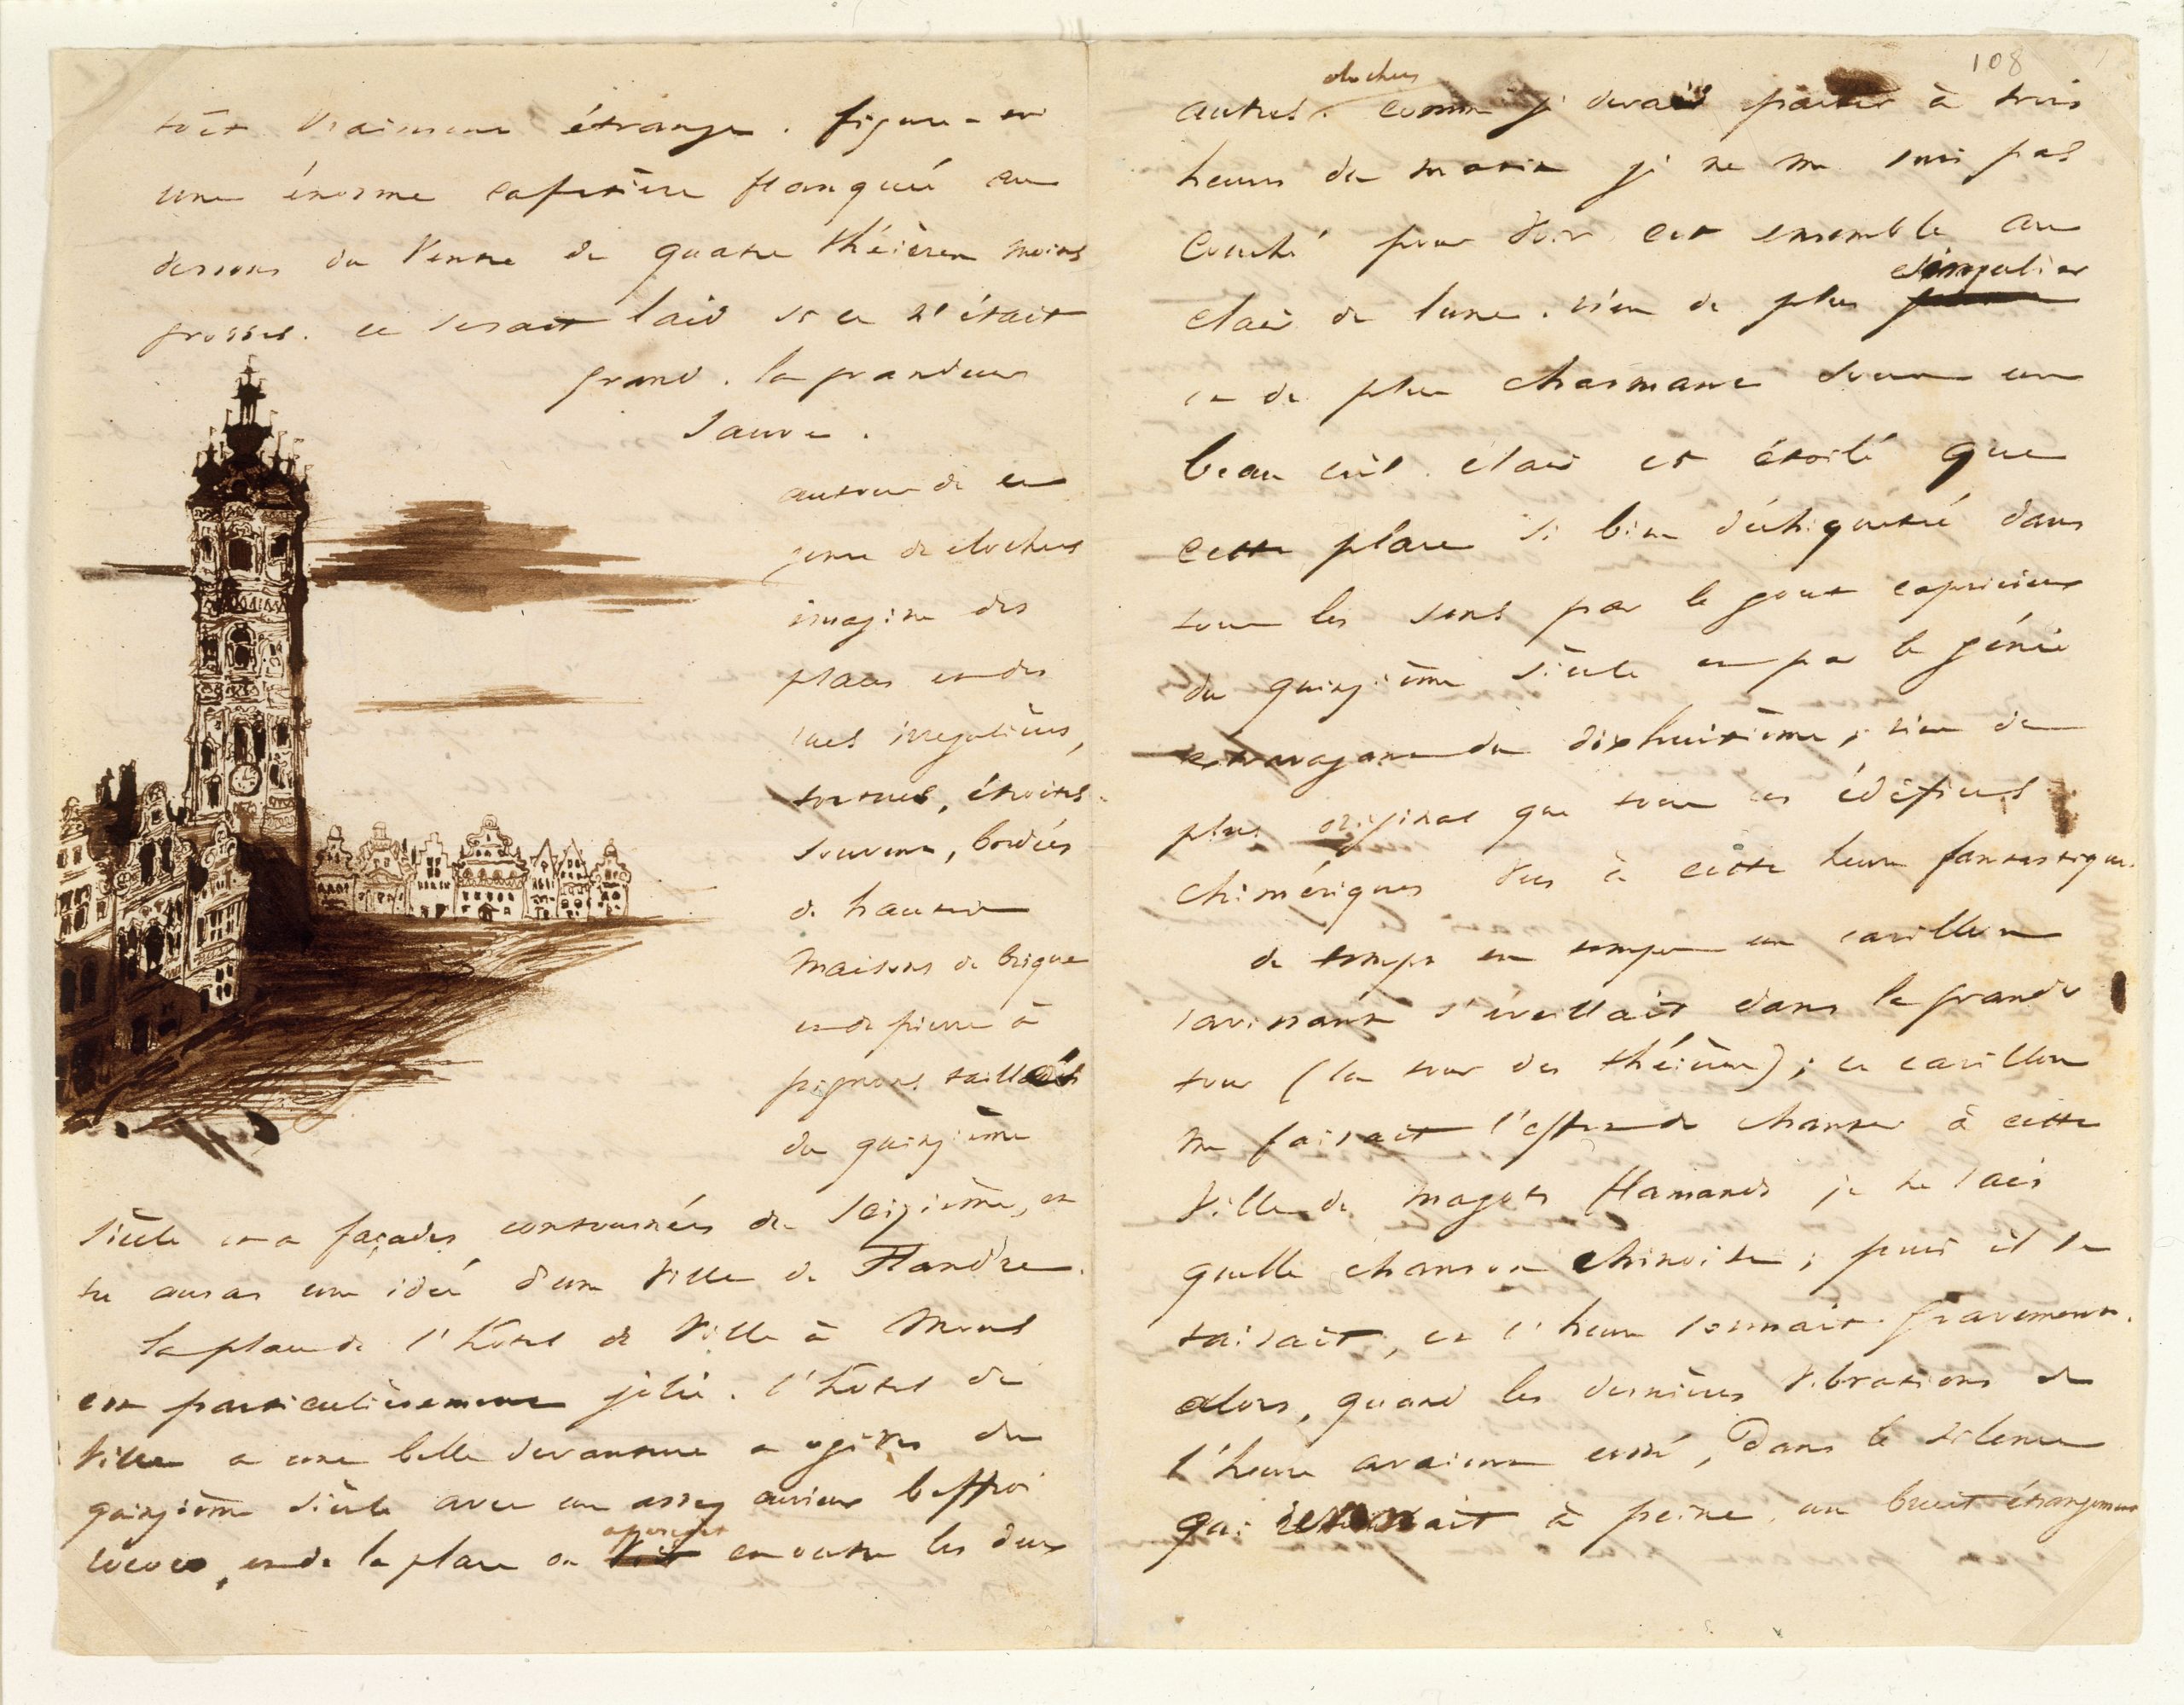 toit vraiment étrange. figure-toi
une énorme cafetière flanquée au
dessous du ventre de quatre théières moins
grosses. ce serait laid si ce n'était
grand. la grandeur
sauve.
autour de ce
genre de clochers
imagine des
places et des
rues irregulières,
tortues, étroites
souvent, bordées
de hautes
maisons de brique
et de pierre à
pignons taillés
du quinzième
siècle et a façades contournées du seizième, et
tu auras une idée d'une ville de Flandre.
la place de l'hôtel de ville à Mons
est particulièrement jolie. l'hôtel de
ville a une belle devanture a ogives du
quinzième siècle avec un assez curieux beffroi
rococo, et de la place on aperçoit en outre les deux
108
autres clochers. comme je devais partir à trois
heures du matin je ne me suis pas
couché pour voir cet ensemble au
clair de lune. rien de plus singulier
et de plus charmant sous un
beau ciel clair et étoilé que
cette place si bien déchiquetée dans
tous les sens par le gout capricieux
du quinzième siècle et par le génie
extravagant du dixhuitième; rien de
plus original que tous ces édifices
chimériques vus à cette heure fantastique.
de temps en temps un carillon
ravissant s'éveillait dans la grande
tour (la tour des théières); ce carillon
me faisait l'effet de chanter à cette
ville de magots flamands je ne sais
quelle chanson chinoise; puis il se
taisait, et l'heure sonnait gravement.
alors, quand les dernières vibrations de
l'heure avaient cessé, dans le silence
qui revenait à peine, un bruit étrangement